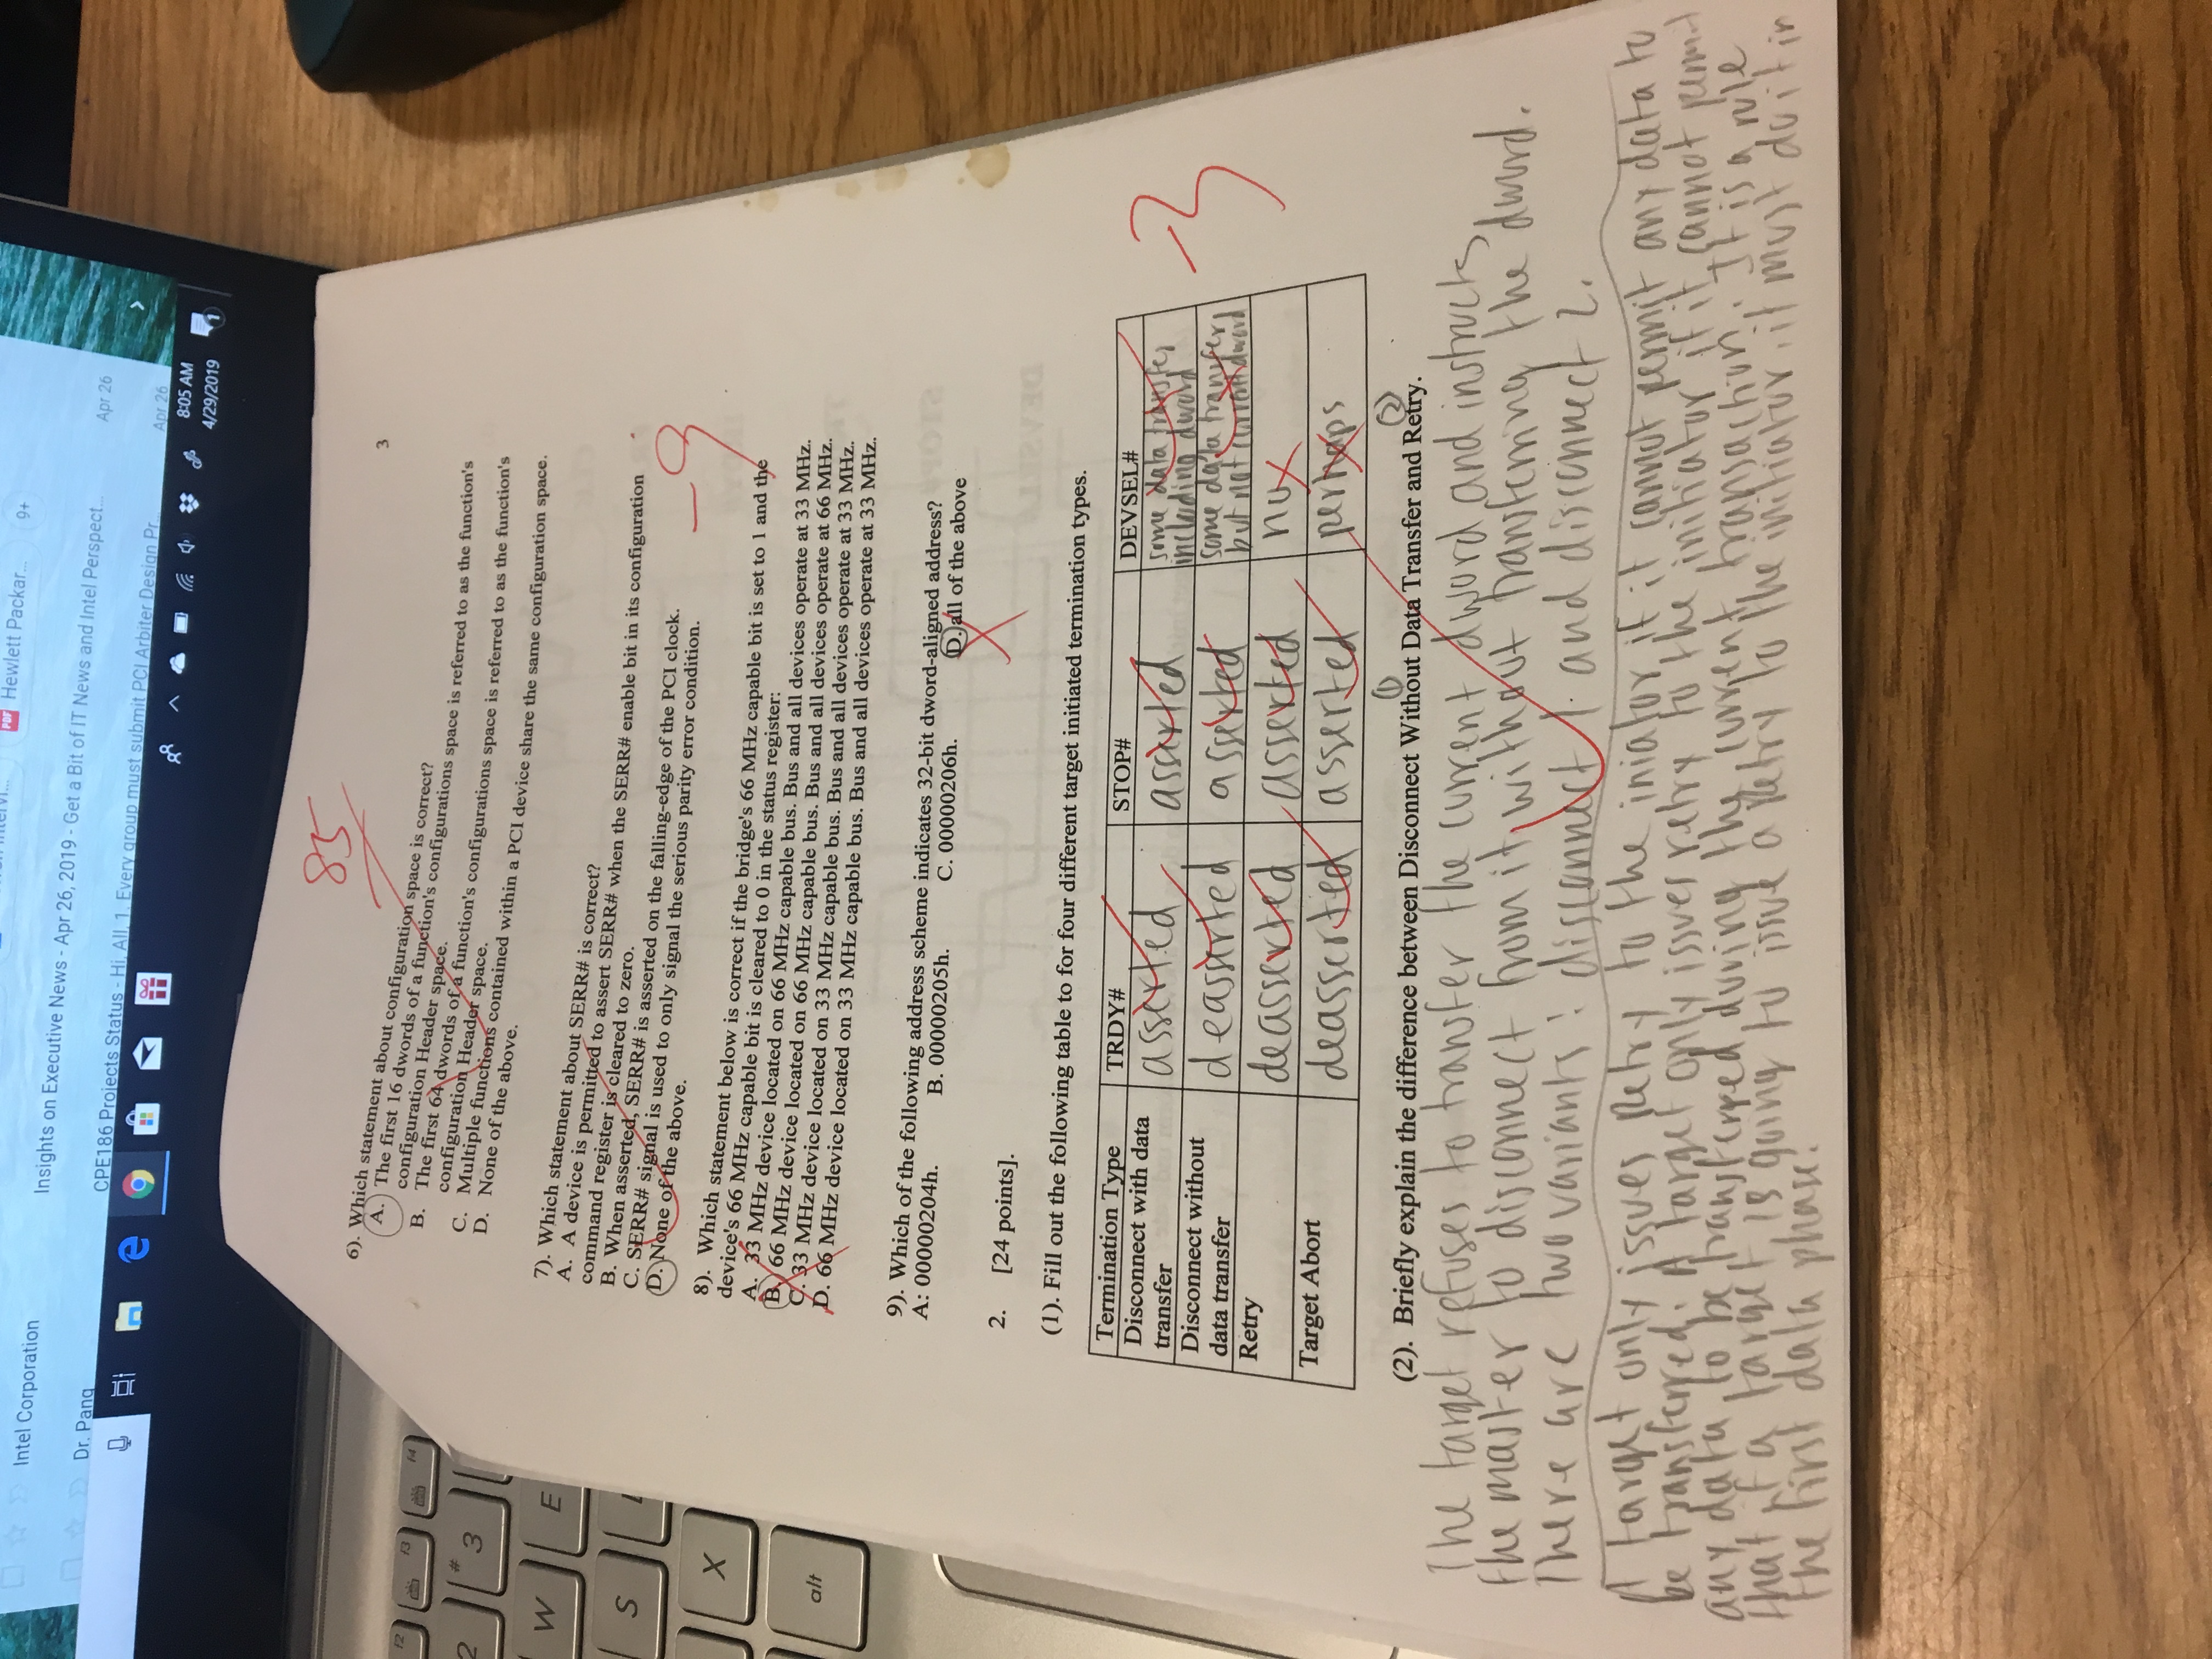 Hewlett Packar...
9+
Intel Corporation
Insights on Executive News - Apr 26, 2019 - Get a Bit of IT News and Intel Perspect...
Apr 26
Dr. Pang
CPE186 Projects Status - Hi, All, 1. Every group must submit PCI Arbiter Design Pr...
Apr 26
8:05 AM
4/29/2019
1
f2
f3
f4
2
#
3
W
E
S
X
alt
85
3
6). Which statement about configuration space is correct?
A. The first 16 dwords of a function's configurations space is referred to as the function's
configuration Header space.
B. The first 64 dwords of a function's configurations space is referred to as the function's
configuration Header space.
C. Multiple functions contained within a PCI device share the same configuration space.
D. None of the above.
7). Which statement about SERR# is correct?
A. A device is permitted to assert SERR# when the SERR# enable bit in its configuration
command register is cleared to zero.
B. When asserted, SERR# is asserted on the falling-edge of the PCI clock.
C. SERR# signal is used to only signal the serious parity error condition.
D. None of the above.
-9
8). Which statement below is correct if the bridge's 66 MHz capable bit is set to 1 and the
device's 66 MHz capable bit is cleared to 0 in the status register:
A. 33 MHz device located on 66 MHz capable bus. Bus and all devices operate at 33 MHz.
B. 66 MHz device located on 66 MHz capable bus. Bus and all devices operate at 66 MHz.
C. 33 MHz device located on 33 MHz capable bus. Bus and all devices operate at 33 MHz.
D. 66 MHz device located on 33 MHz capable bus. Bus and all devices operate at 33 MHz.
9). Which of the following address scheme indicates 32-bit dword-aligned address?
A: 00000204h. B. 00000205h. C. 00000206h. D. all of the above
2. [24 points].
(1). Fill out the following table to for four different target initiated termination types.
Termination Type TRDY# STOP# DEVSEL#
Disconnect with data transfer asserted asserted some data transfer, including dword
Disconnect without data transfer deasserted asserted some data transfer, but not current dword
Retry deasserted asserted no
Target Abort deasserted asserted perhaps
-3
1 2
(2). Briefly explain the difference between Disconnect Without Data Transfer and Retry.
The target refuses to transfer the current dword and instructs
the master to disconnect from it, without transferring the dword.
There are two variants: disconnect 1 and disconnect 2.
A target only issues Retry to the iniator if it cannot permit any data to
be transferred. A target only issues retry to the initiator if it cannot permit
any data to be transferred during the current transaction. It is a rule
that if a target is going to issue a Retry to the initiator, it must do it in
the first data phase.